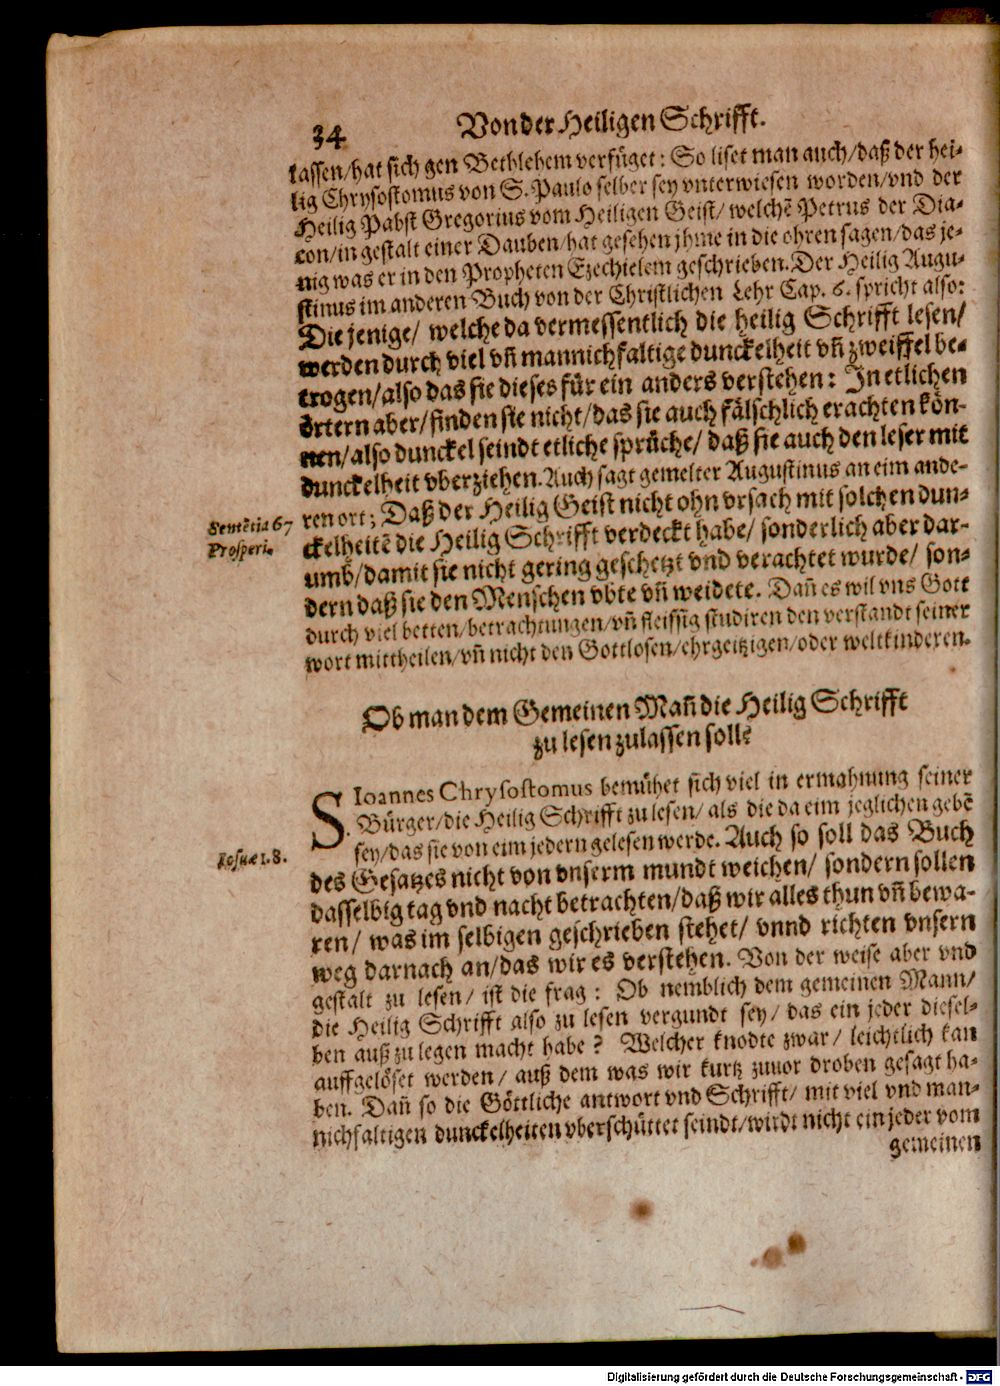 34
Von der Heiligen Schrifft.
lassen/hat sich gen Bethlehem verfüget: So liset man auch/daß der hei-
lig Chrysostomus von S. Paulo selber sey vnterwiesen worden/vnd der
Heilig Pabst Gregorius vom Heiligen Geist/ welchē Petrus der Dia-
con/in gestalt einer Dauben/hat gesehen jhme in die ohren sagen/das je-
nig was er in den Propheten Ezechielem geschrieben. Der Heilig Augu-
stinus im anderen Buch von der Christlichen Lehr Cap. 6. spricht also:
Die jenige/ welche da vermessentlich die heilig Schrifft lesen/
werden durch viel vñ mannichfaltige dunckelheit vñ zweiffel be-
trogen/also das sie dieses für ein anders verstehen: In etlichen
örtern aber/finden sie nicht/das sie auch fälschlich erachten kön-
nen/also dunckel seindt etliche sprüche/ daß sie auch den leser mit
dunckelheit vberziehen. Auch sagt gemelter Augustinus an eim ande-
Semētia 67
Prosperi.
ren ort; Daß der Heilig Geist nicht ohn vrsach mit solchen dun-
ckelheitē die Heilig Schrifft verdeckt habe/ sonderlich aber dar-
umb/damit sie nicht gering geschetzt vnd verachtet wurde/ son-
dern daß sie den Menschen vbte vñ weidete. Dañ es wil vns Gott
durch viel betten/betrachtungen/vñ fleissig studiren den verstandt seiner
wort mittheilen/vñ nicht den Gottlosen/ehrgeitzigen/oder weltkinderen.
Ob man dem Gemeinen Mañ die Heilig Schrifft
zu lesen zulassen soll?
S. Ioannes Chrysostomus bemühet sich viel in ermahnung seiner
Bürger/die Heilig Schrifft zu lesen/ als die da eim jeglichen gebē
sey/das sie von eim jedern gelesen werde. Auch so soll das Buch
Iosuæ 1. 8.
des Gesatzes nicht von vnserm mundt weichen/ sondern sollen
dasselbig tag vnd nacht betrachten/daß wir alles thun vñ bewa-
ren/ was im selbigen geschrieben stehet/ vnnd richten vnsern
weg darnach an/das wir es verstehen. Von der weise aber vnd
gestalt zu lesen/ ist die frag: Ob nemblich dem gemeinen Mann/
die Heilig Schrifft also zu lesen vergundt sey/ das ein jeder diesel-
ben auß zu legen macht habe? Welcher knodte zwar/ leichtlich kan
auffgelöset werden/ auß dem was wir kurtz zuuor droben gesagt ha-
ben. Dañ so die Göttliche antwort vnd Schrifft/ mit viel vnd man-
nichfaltigen dunckelheiten vberschüttet seindt/wirdt nicht ein jeder vom
gemeinen
Digitalisierung gefördert durch die Deutsche Forschungsgemeinschaft - DFG